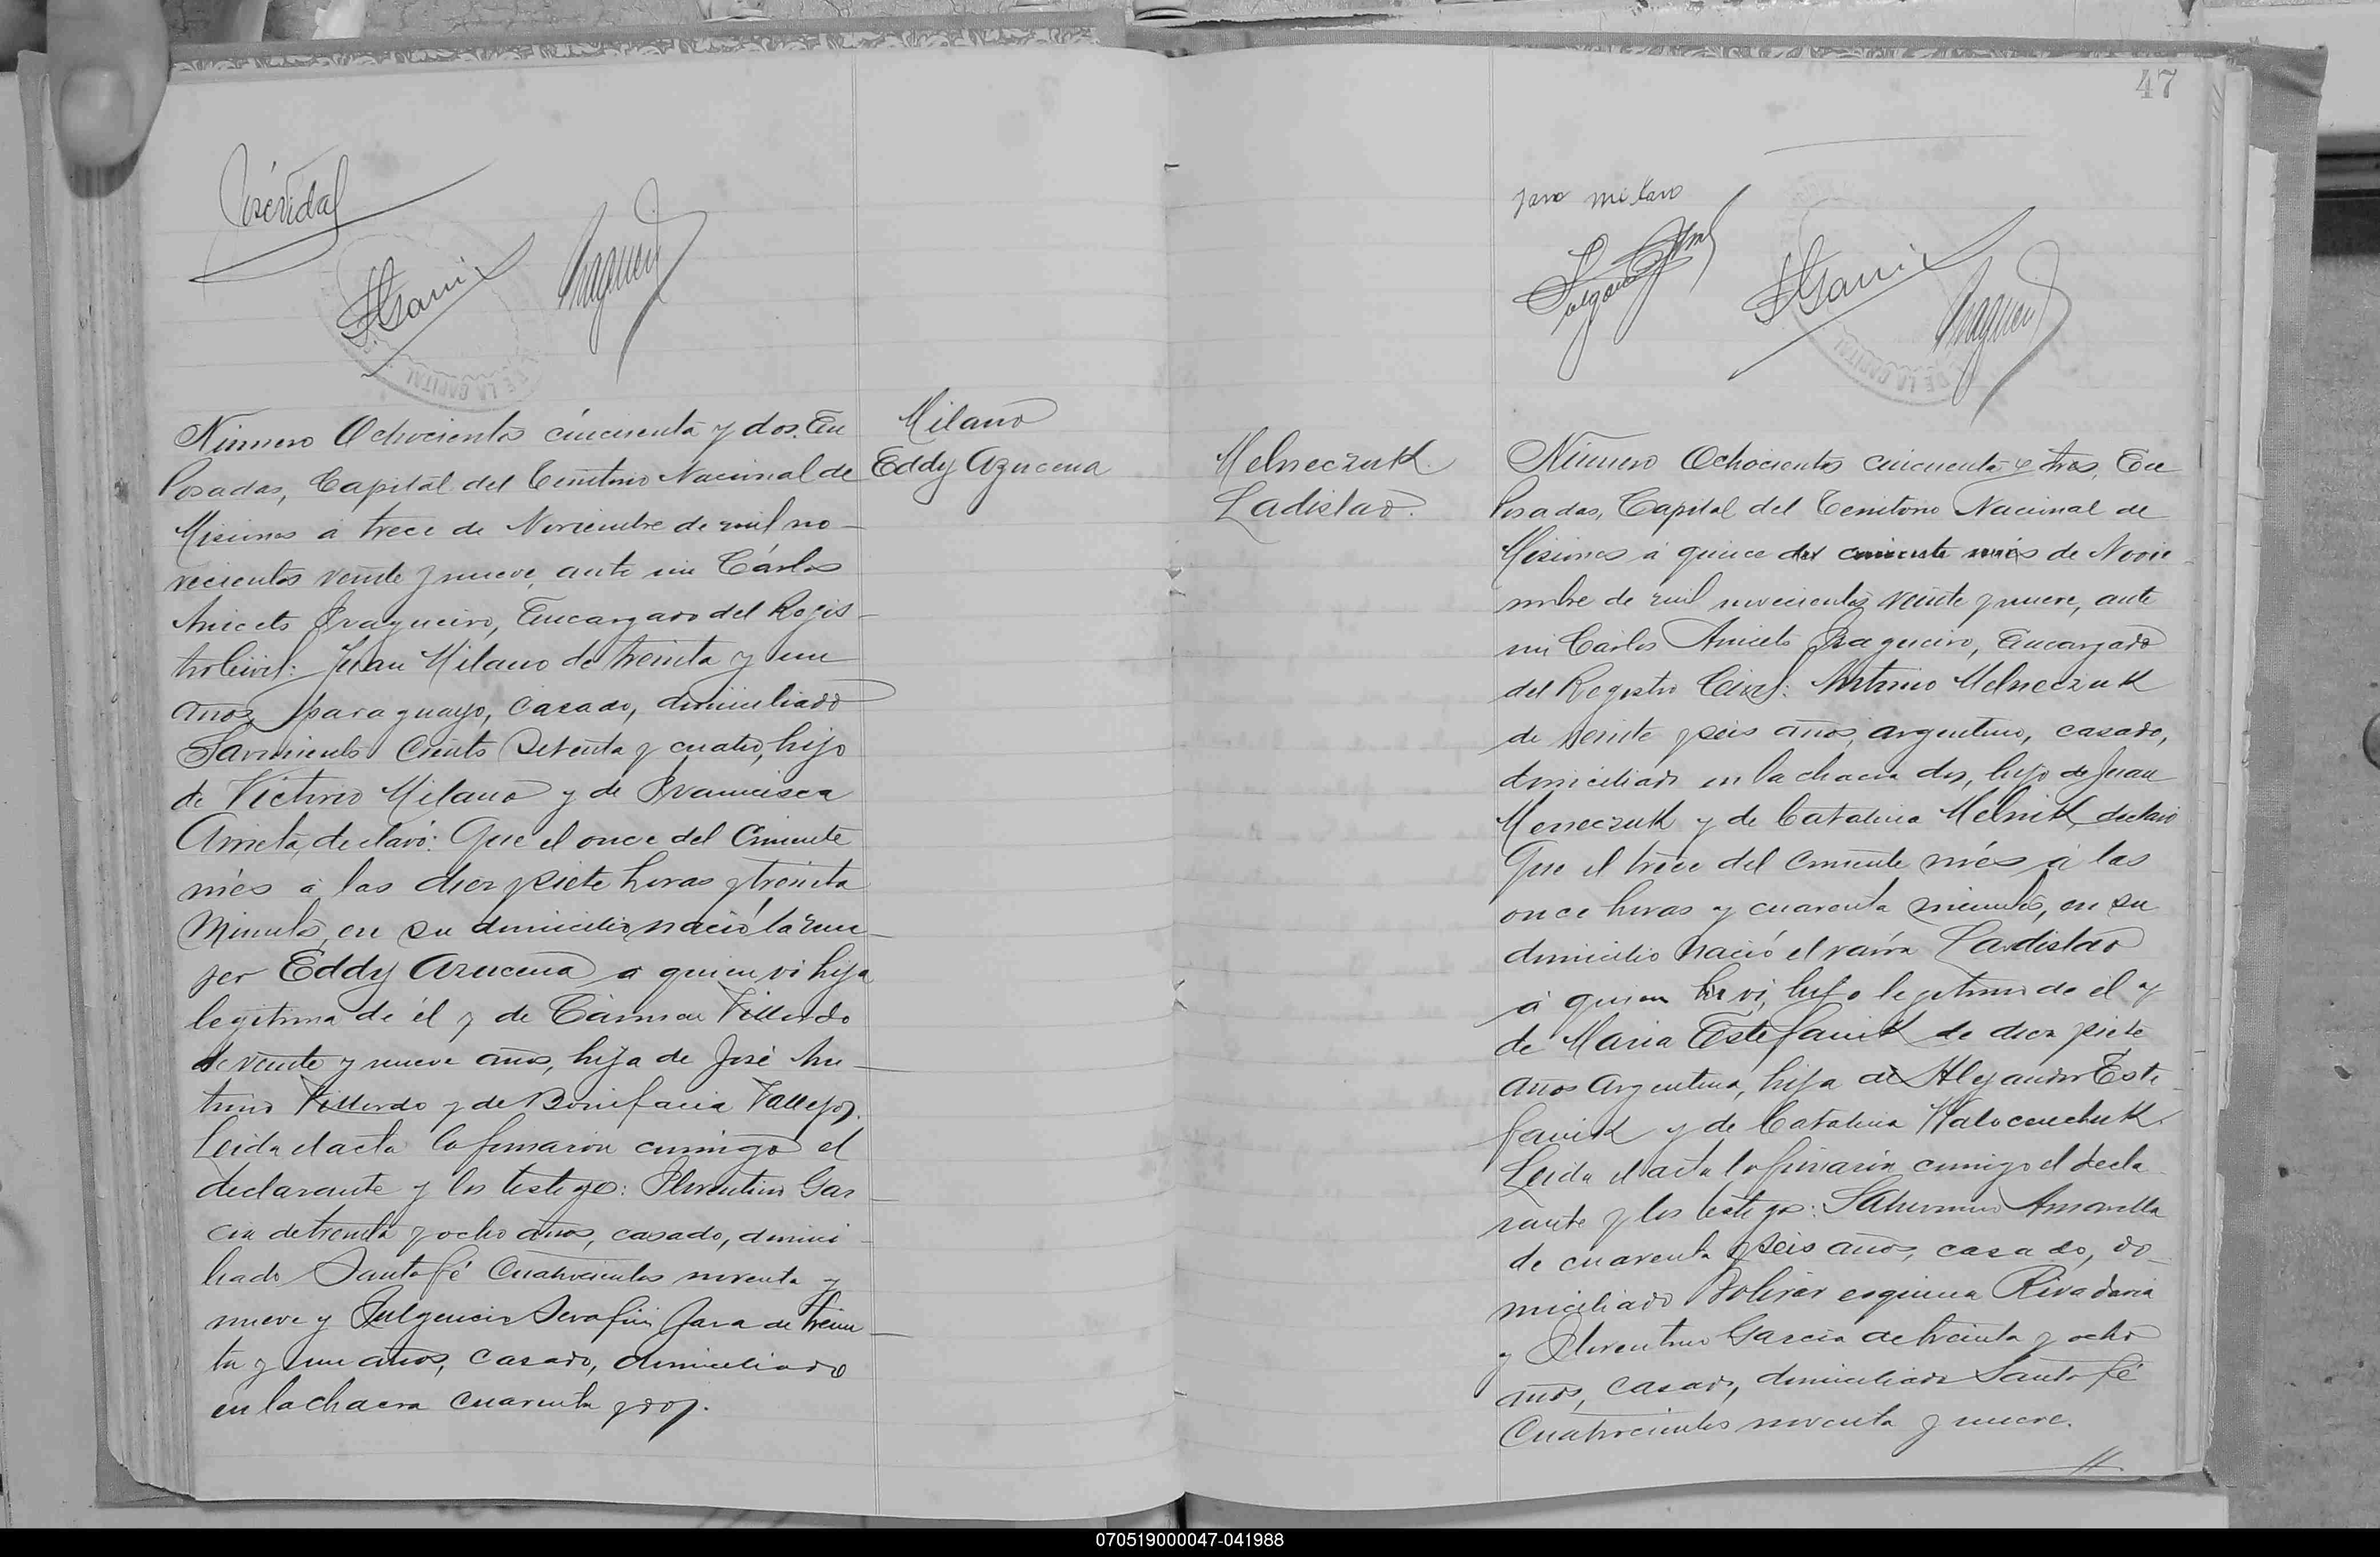 José Vidal
F Garcia
Número Ochocientos cincuenta y dos. En
Posadas, Capital del Territorio Nacional de
Misiones á trece de Noviembre de mil no-
vecientos veinte y nueve, ante mi Cárlos
Aniceto Fragueiro, Encargado del Regis-
tro Civil: Juan Milano de treinta y un
años, paraguayo, casado, domiciliado
Sarmiento Ciento Setenta y cuatro, hijo
de Victorio Milano y de Francisca
Arrieta, declaró: Que el once del corriente
més á las diez y siete horas y treinta
minutos, en su domicilio nació la mu-
jer Eddy Azucena a quien vi hija
legitima de él y de Cármen Villordo
de veinte y nueve años, hija de José An-
tonio Villordo y de Bonifacia Vallejos.
Leida el acta la firmaron conmigo el
declarante y los testigos: Florentino Gar-
cia de treinta y ocho años, casado, domici-
liado Santa fé Cuatrocientos noventa y
nueve y Fulgencio Serafin Jara de trein-
ta y un años, casado, domiciliado
en la chacra cuarenta y dos.
Milano
Eddy Azucena
47
Juan milano
F Garcia
DE LA CAPITAL
Melneczuk
Ladislao.
Número Ochocientos cincuenta y tres. En
Posadas, Capital del Territorio Nacional de
Misiones á quince del corriente més de Novie-
mbre de mil novecientos veinte y nueve, ante
mi Carlos Aniceto Fragueiro, Encargado
del Registro Civil: Antonio Melneczuk
de veinte y seis años, argentino, casado,
domiciliado en la chacra dos, hijo de Juan
Merneczuk y de Catalina Melnik, declaró
Que el trece del corriente més á las
once horas y cuarenta minutos, en su
domicilio nació el varón Ladislao
á quien vi, hijo legitimo de él y
de Maria Estefanik de diez y siete
años Argentina, hija de Alejandro Este-
fanik y de Catalina
Leida el acta la firmaron conmigo el decla-
rante y los testigos: Saturnino Amarilla
de cuarenta y seis años, casado, do-
miciliado Bolivar esquina Rivadavia
y Florentino Garcia de treinta y ocho
años, casado, domiciliado Santa fé
Cuatrocientos noventa y nueve.
070519000047-041988